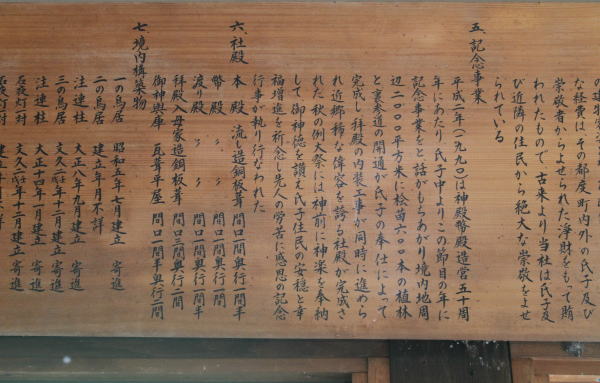 な経費は、その都度町内外の氏子及び
崇敬者からよせられた浄財をもって賄
われたもので、古来より当社は氏子及
び近隣の住民から絶大な崇敬をよせ
られている
五、記念事業
平成二年(一九九〇)は神殿幣殿造営五十周
年にあたり、氏子中よりこの節目の年に
記念事業をと話がもちあがり境内地周
辺二〇〇〇平方米に桧苗六〇〇本の植林
と裏参道の開通が氏子の奉仕によって
完成し、拝殿の内装工事が同時に進めら
れ近郷稀な偉容を誇る社殿が完成さ
れた秋の例大祭には神前に神楽を奉納
して御神徳を讃え氏子住民の安穏と幸
福増進を祈念し先人の労苦に感恩の記念
行事が執り行なわれた
六、社殿
本殿 流し造銅板葺 間口一間奥行一間半
幣殿 〃 〃 間口一間奥行一間
渡り殿 〃 〃 間口一間奥行一間半
拝殿 入母家造銅板葺 間口三間奥行二間
御神輿庫 瓦葺平屋 間口一間半奥行二間
七、境内構築物
一の鳥居 昭和五年七月建立 寄進
二の鳥居 建立年月不詳
注連柱 大正八年九月建立 寄進
三の鳥居 文久二年十二月建立 寄進
注連柱 大正十四年一月建立 寄進
石夜灯一対 文久二年十二月建立 寄進